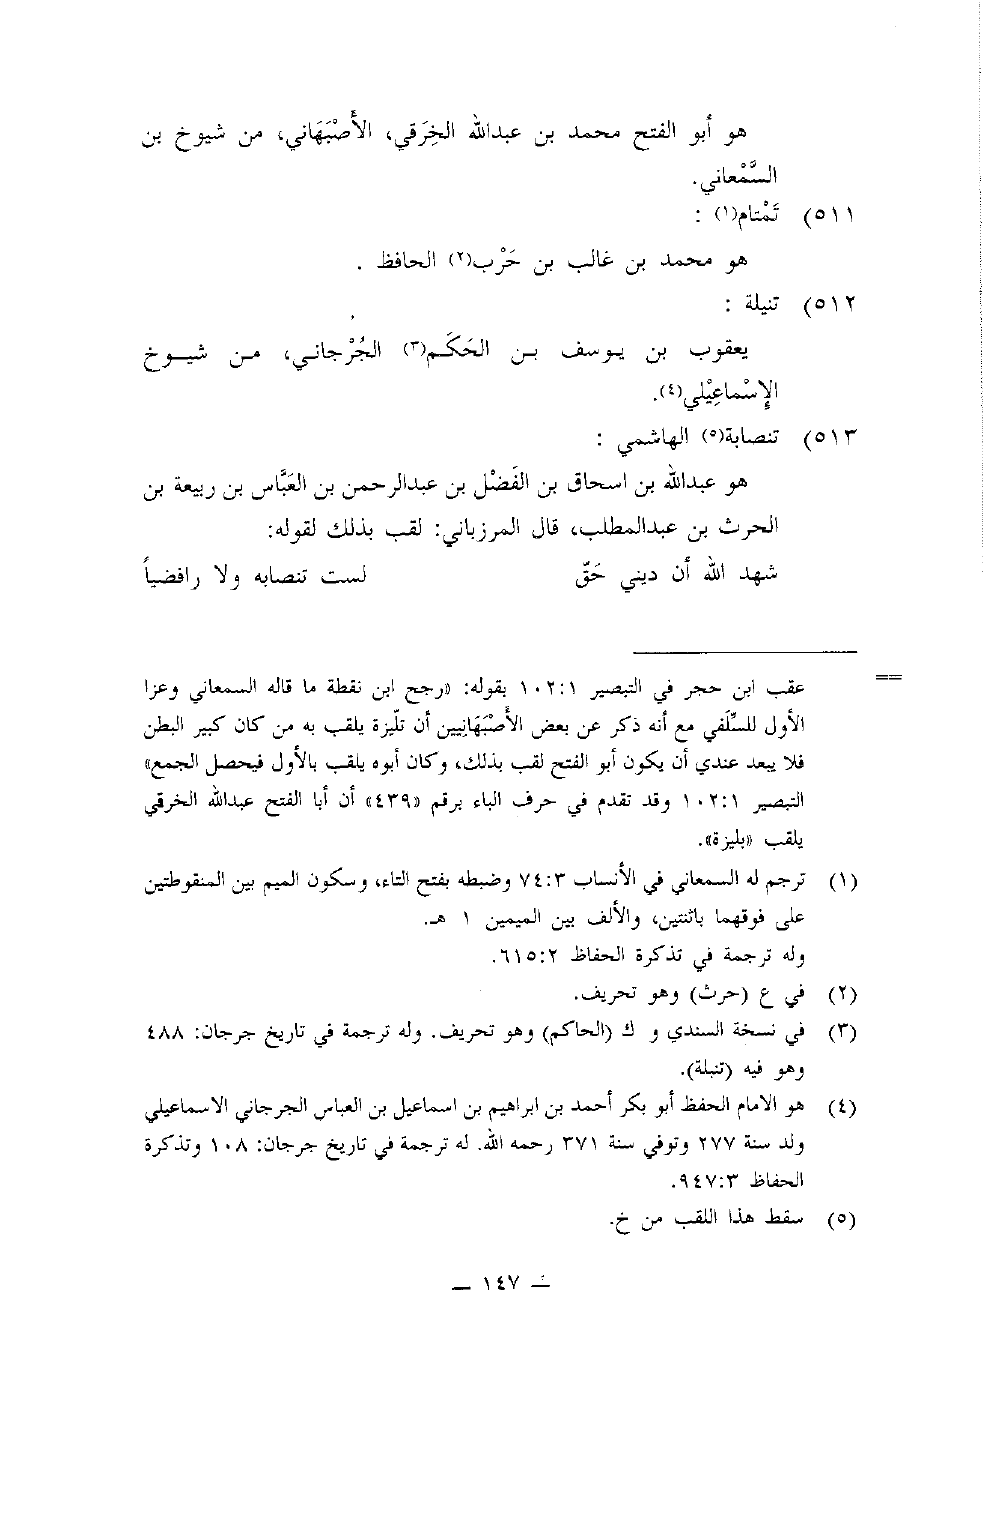 هو أبو الفتح محمد بن عبدالله الخِرَقي، الأَصْبَهَاني، من شيوخ بن
السَّمْعاني.
٥١١) تَمْتام(١) :
هو محمد بن غالب بن حَرْب(٢) الحافظ .
٥١٢) تنيلة :
يعقوب بن يوسف بن الحَكَم(٣) الجُرْجاني، من شيوخ
الإِسْماعِيْلي(٤).
٥١٣) تنصابة(٥) الهاشمي :
هو عبدالله بن اسحاق بن الفَضْل بن عبدالرحمن بن العَبَّاس بن ربيعة بن
الحرث بن عبدالمطلب، قال المرزباني: لقب بذلك لقوله:
شهد الله أن ديني حَقّ لست تنصابه ولا رافضياً
== عقب ابن حجر في التبصير ١٠٢:١ بقوله: «رجح ابن نقطة ما قاله السمعاني وعزا
الأول للسِّلَفي مع أنه ذكر عن بعض الأَصْبَهَانِيين أن تلّيزة يلقب به من كان كبير البطن
فلا يبعد عندي أن يكون أبو الفتح لقب بذلك، وكان أبوه يلقب بالأول فيحصل الجمع»
التبصير ١٠٢:١ وقد تقدم في حرف الباء برقم «٤٣٩» أن أبا الفتح عبدالله الخرقي
يلقب «بليزة».
(١) ترجم له السمعاني في الأنساب ٧٤:٣ وضبطه بفتح التاء، وسكون الميم بين المنقوطتين
على فوقهما باثنتين، والألف بين الميمين ١ هـ.
وله ترجمة في تذكرة الحفاظ ٦١٥:٢.
(٢) في ع (حرث) وهو تحريف.
(٣) في نسخة السندي و ك (الحاكم) وهو تحريف. وله ترجمة في تاريخ جرجان: ٤٨٨
وهو فيه (تنبلة).
(٤) هو الامام الحفظ أبو بكر أحمد بن ابراهيم بن اسماعيل بن العباس الجرجاني الاسماعيلي
ولد سنة ٢٧٧ وتوفي سنة ٣٧١ رحمه الله. له ترجمة في تاريخ جرجان: ١٠٨ وتذكرة
الحفاظ ٩٤٧:٣.
(٥) سقط هذا اللقب من خ.
— ١٤٧ —